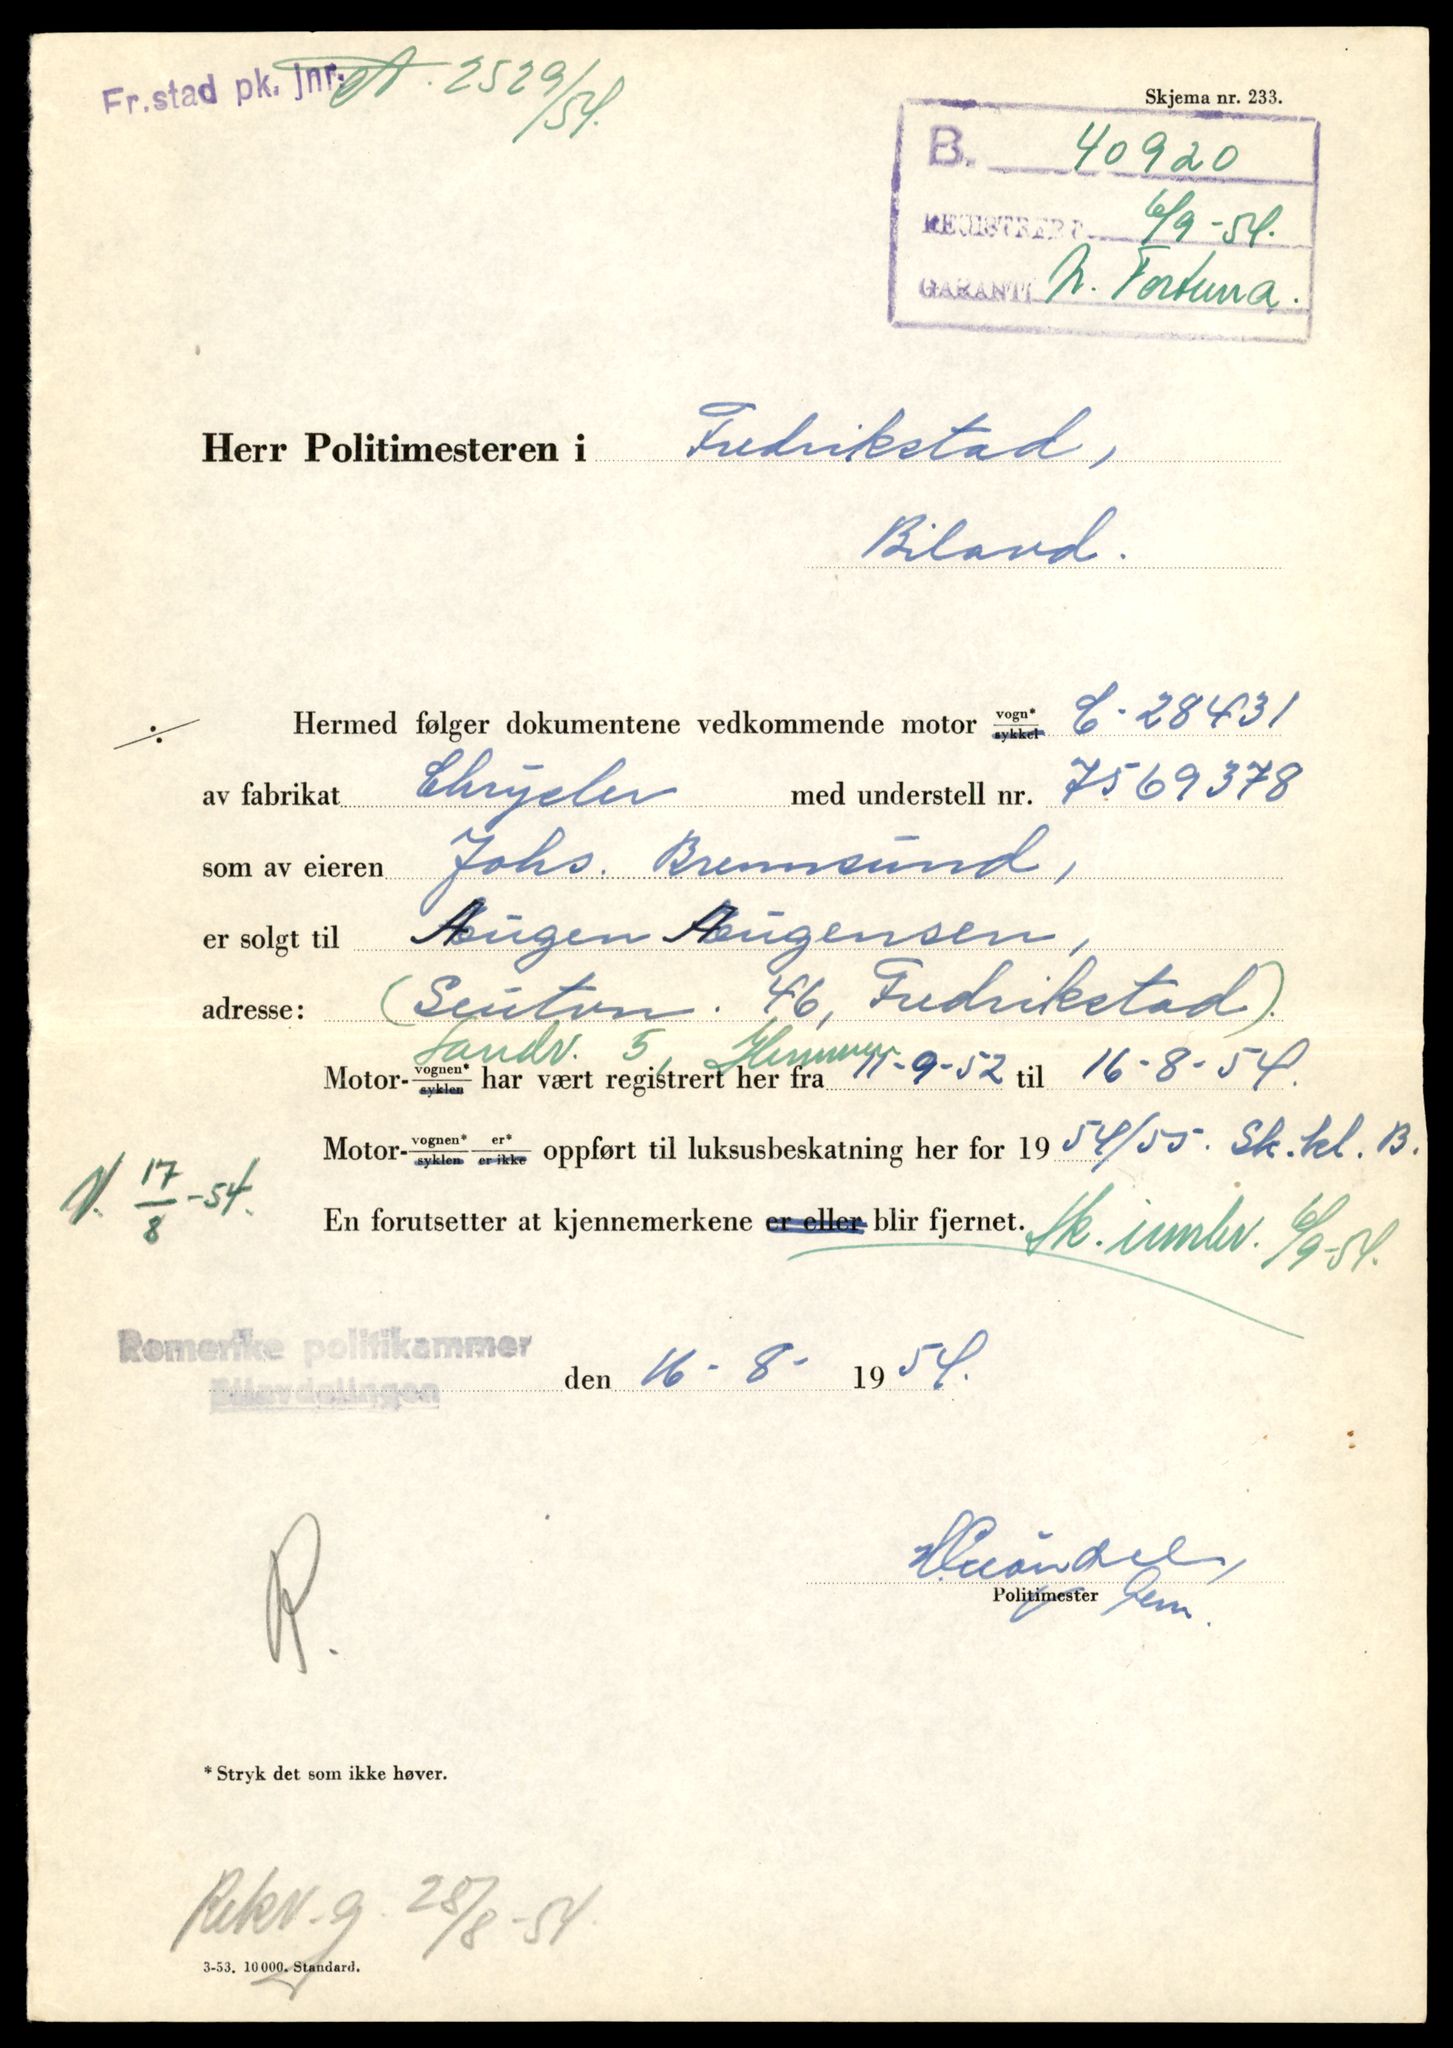 Fr.stad pk. jnr. A. 2529/54.
Skjema nr. 233.
B. 40920
REGISTRERT 6/9-54.
GARANTI N. Fortuna.
Herr Politimesteren i Fredrikstad,
Bilavd.
÷ Hermed følger dokumentene vedkommende motor vogn* sykkel C-28431
av fabrikat Chrysler med understell nr. 7569378
som av eieren Johs. Brennsund,
er solgt til Augen Augensen,
adresse: (Seutvn. 46, Fredrikstad).
Sandv. 5,
Motor-vognen* syklen har vært registrert her fra 11-9-52 til 16-8-54.
Motor-vognen* syklen er* er ikke oppført til luksusbeskatning her for 19 54/55. Sk.kl. B.
N. 17/8-54.
En forutsetter at kjennemerkene er eller blir fjernet. Sk. innbv. 6/9-54.
Romerike politikammer
Bilavdelingen
den 16-8-1954.
Politimester
R.
* Stryk det som ikke høver.
Rekv. g. 28/8-54
3-53. 10000. Standard.